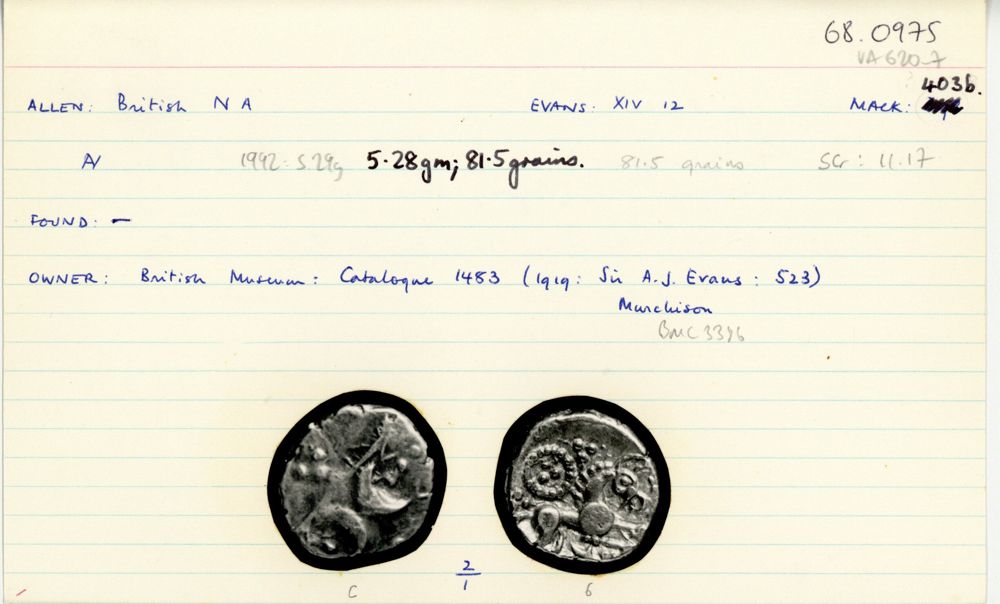 68.0975
VA 620-7
403b.
ALLEN: British N A EVANS: XIV 12 MACK:
AV 1992: 5.29g 5.28gm; 81.5 grains. 81.5 grains SG: 11.17
FOUND: —
OWNER: British Museum: Catalogue 1483 (1919: Sir A.J. Evans: 523)
Murchison
BMC 3396
2
1
C 6